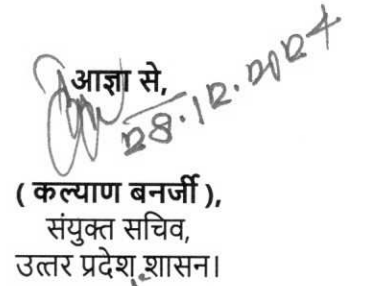 आज्ञा से,
28.12.2024
( कल्याण बनर्जी ),
संयुक्त सचिव,
उत्तर प्रदेश शासन।